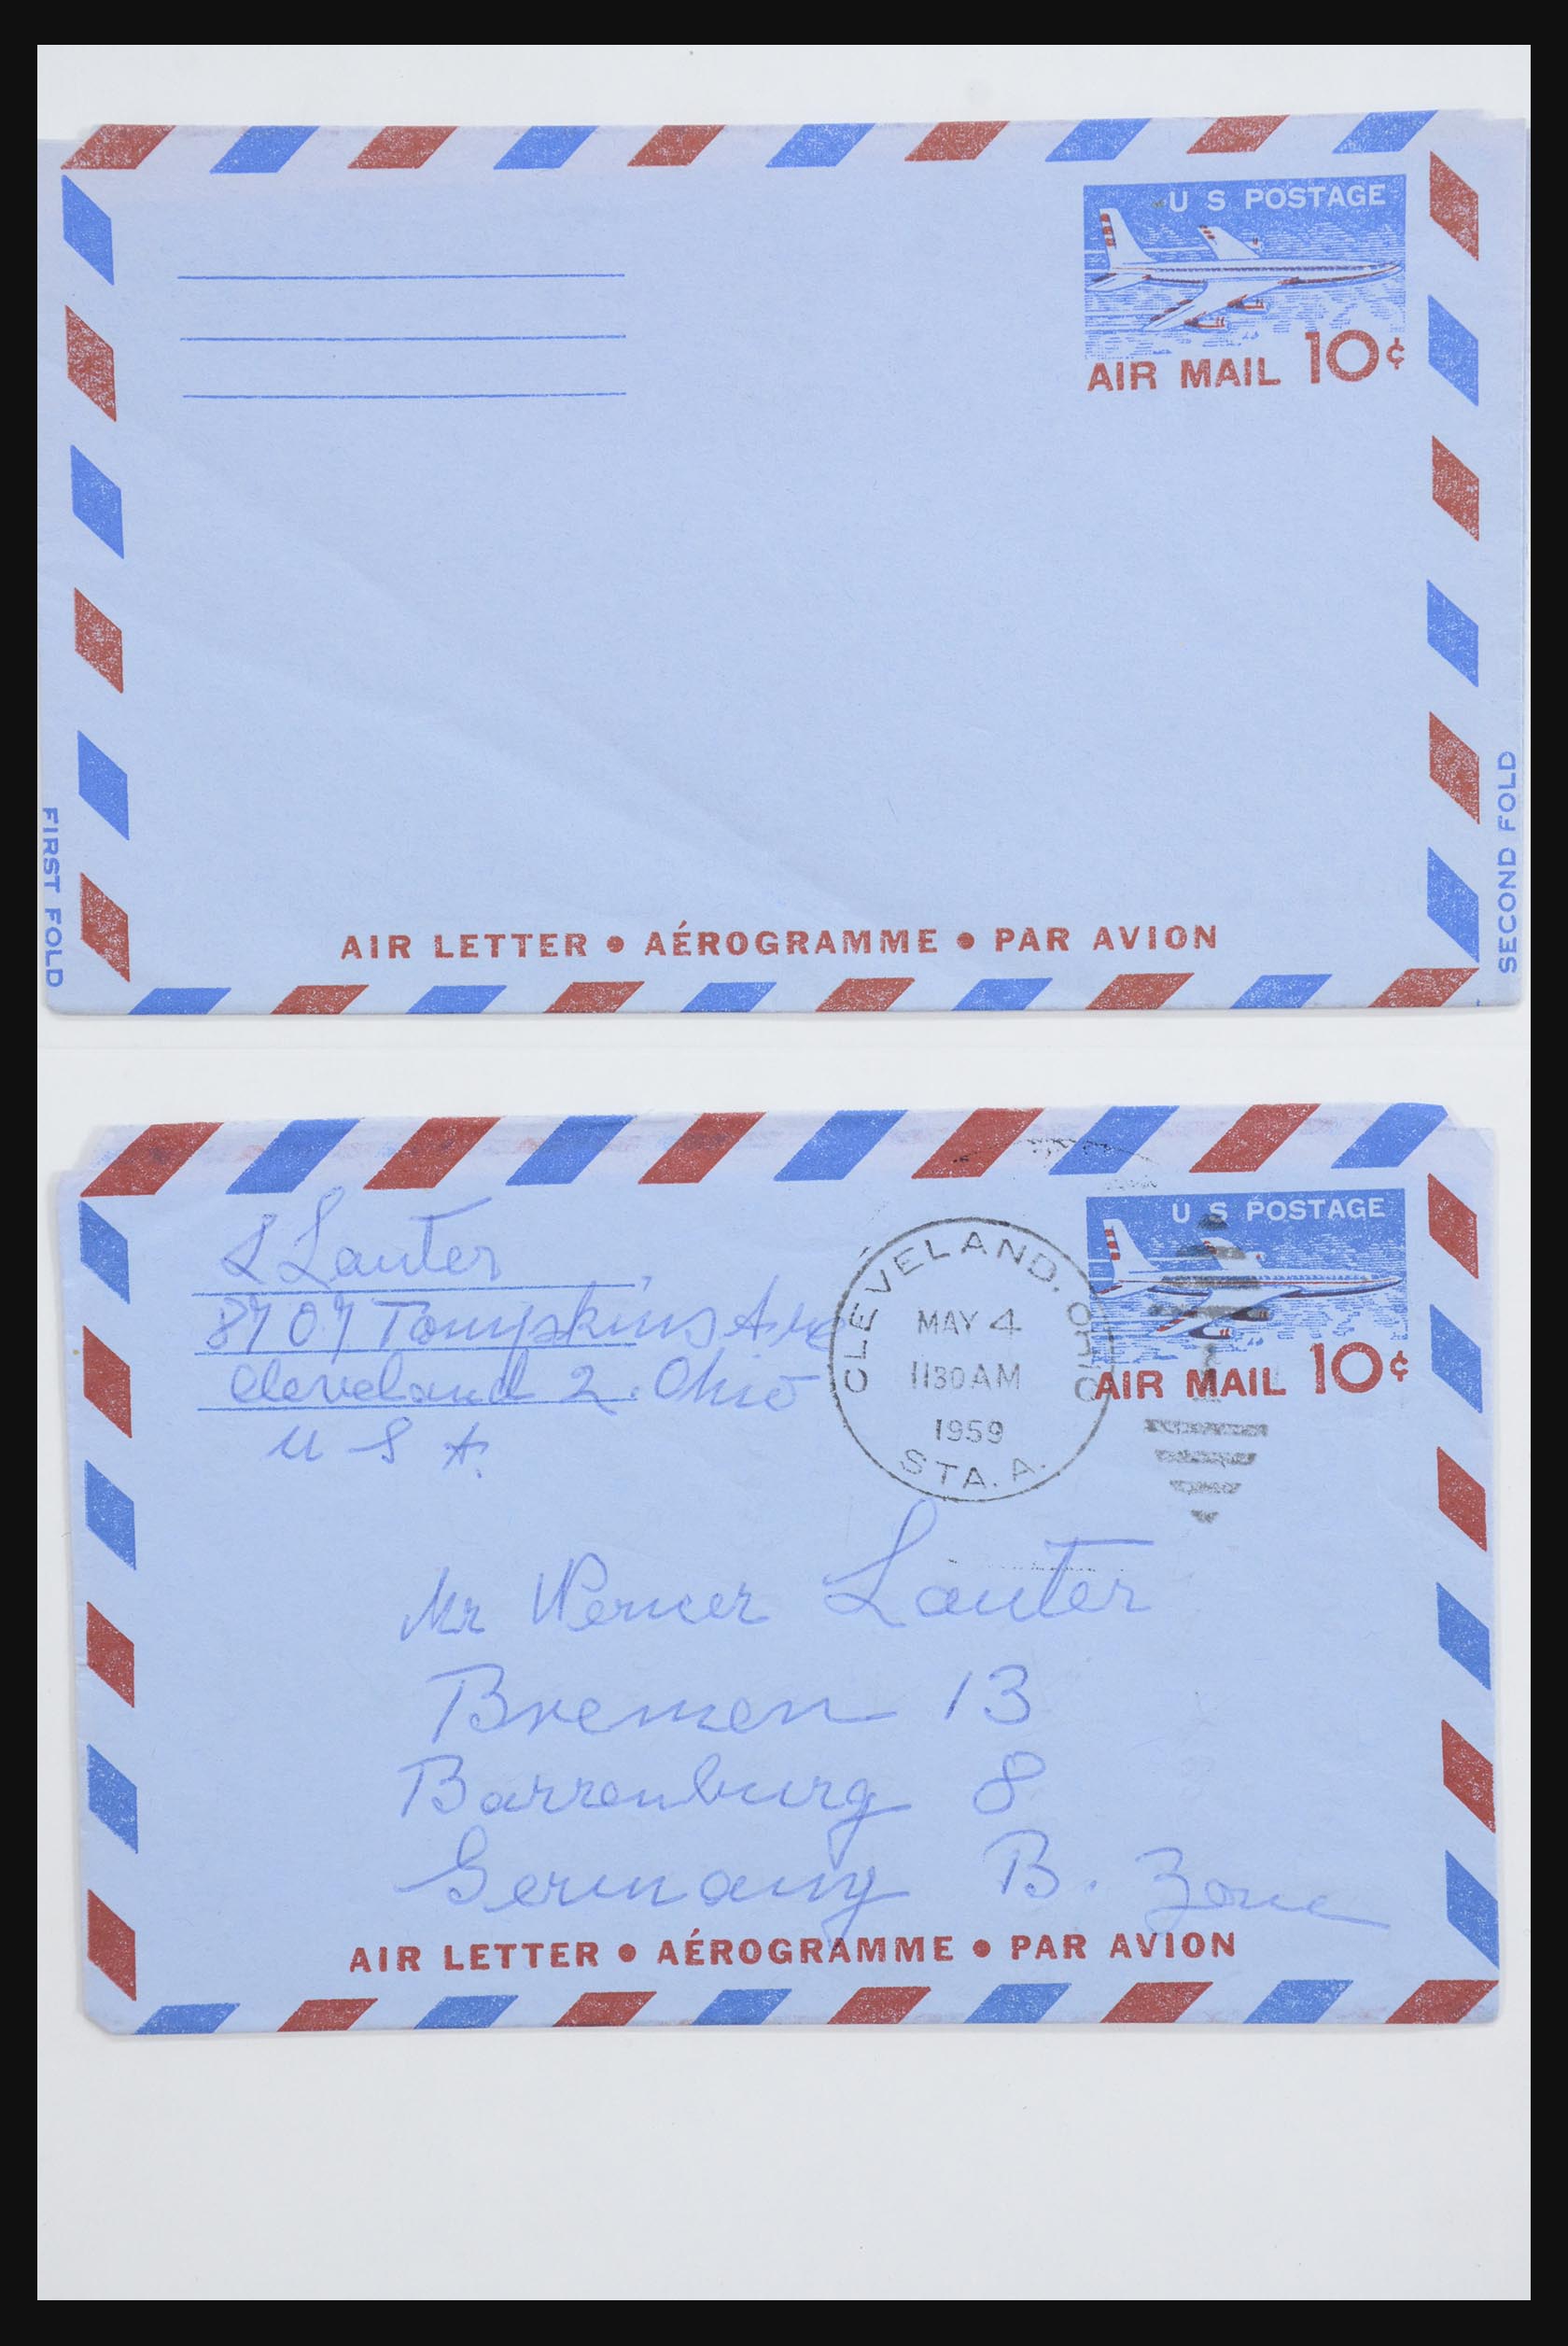 U S POSTAGE
AIR MAIL 10¢
FIRST FOLD
SECOND FOLD
AIR LETTER • AÉROGRAMME • PAR AVION
U S POSTAGE
AIR MAIL 10¢
L Lauter
8707 Tompkins Ave
Cleveland 2. Ohio
U S A.
CLEVELAND, OHIO
MAY 4
1130 AM
1959
STA. A.
Mr Werner Lauter
Bremen 13
Barrenburg 8
Germany B. Zone
AIR LETTER • AÉROGRAMME • PAR AVION